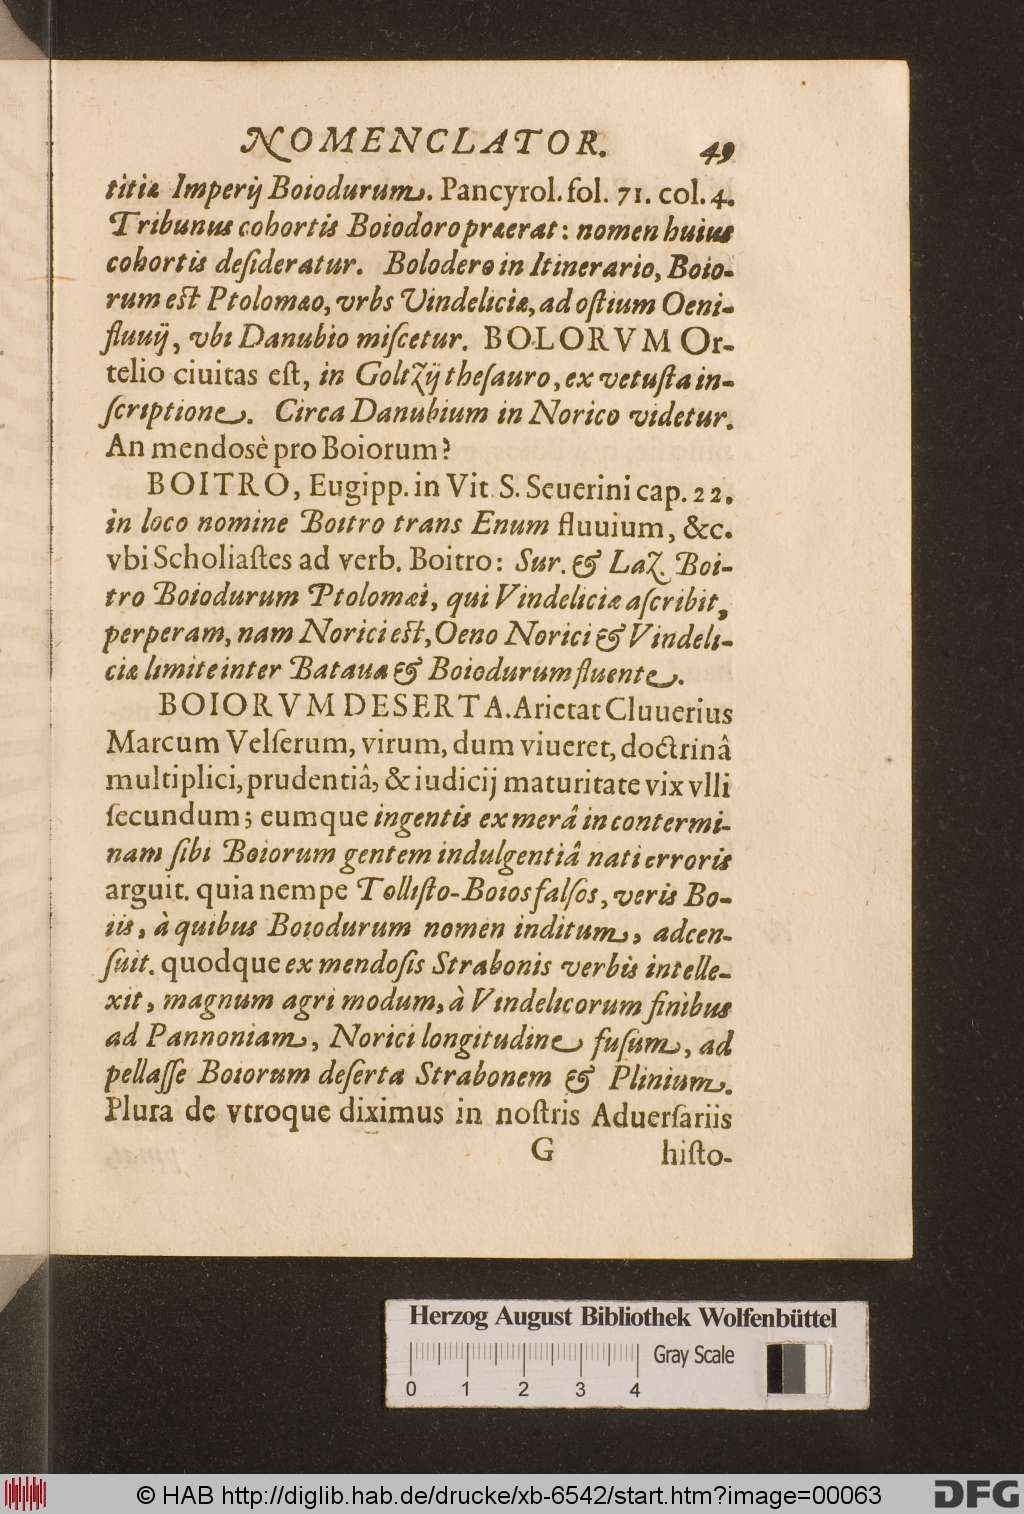 NOMENCLATOR. 49
titiæ Imperij Boiodurum. Pancyrol. fol. 71. col. 4.
Tribunus cohortis Boiodoro præerat: nomen huius
cohortis deſideratur. Bolodero in Itinerario, Boio-
rum eſt Ptolomæo, vrbs Vindeliciæ, ad oſtium Oeni-
fluuij, vbi Danubio miſcetur. BOLORVM Or-
telio ciuitas eſt, in Goltzij theſauro, ex vetuſta in-
ſcriptione. Circa Danubium in Norico videtur.
An mendosè pro Boiorum?
BOITRO, Eugipp. in Vit S. Seuerini cap. 22.
in loco nomine Boitro trans Enum fluuium, &c.
vbi Scholiaſtes ad verb. Boitro: Sur. & Laz. Boi-
tro Boiodurum Ptolomæi, qui Vindeliciæ aſcribit,
perperam, nam Norici eſt, Oeno Norici & Vindeli-
ciæ limite inter Bataua & Boiodurum fluente.
BOIORVM DESERTA. Arietat Cluuerius
Marcum Velſerum, virum, dum viueret, doctrinâ
multiplici, prudentiâ, & iudicij maturitate vix vlli
ſecundum; eumque ingentis ex merâ in contermi-
nam ſibi Boiorum gentem indulgentiâ nati erroris
arguit. quia nempe Tolliſto-Boios falſos, veris Bo-
iis, à quibus Boiodurum nomen inditum, adcen-
ſuit. quodque ex mendoſis Strabonis verbis intelle-
xit, magnum agri modum, à Vindelicorum finibus
ad Pannoniam, Norici longitudine fuſum, ad
pellaſſe Boiorum deſerta Strabonem & Plinium.
Plura de vtroque diximus in noſtris Aduerſariis
G hiſto-
Herzog August Bibliothek Wolfenbüttel
Gray Scale
0 1 2 3 4
© HAB http://diglib.hab.de/drucke/xb-6542/start.htm?image=00063
DFG